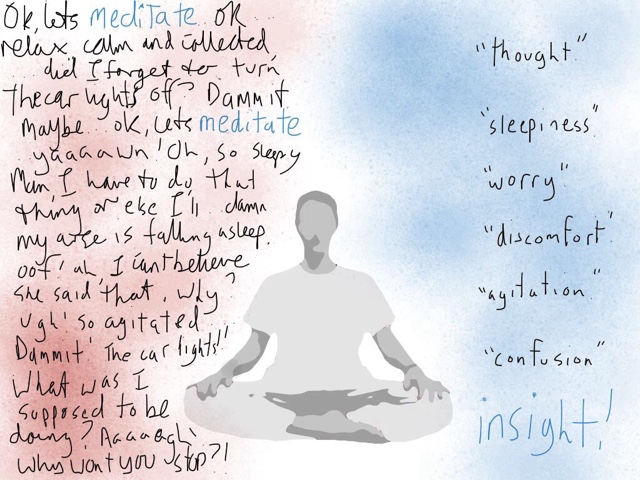 Ok, lets meditate ok
relax calm and collected
did I forget to turn
the car lights off? Dammit
maybe.. ok, lets meditate
yaaaawn! Oh, so sleepy
Man I have to do that
thing or else I'll damn
my arse is falling asleep.
oof! ah, I cant believe
she said that, why?
ugh! so agitated
Dammit! The car lights!!
What was I
supposed to be
doing? Aaaaagh!
Why wont you stop?!
"thought"
"sleepiness"
"worry"
"discomfort"
"agitation"
"confusion"
insight!